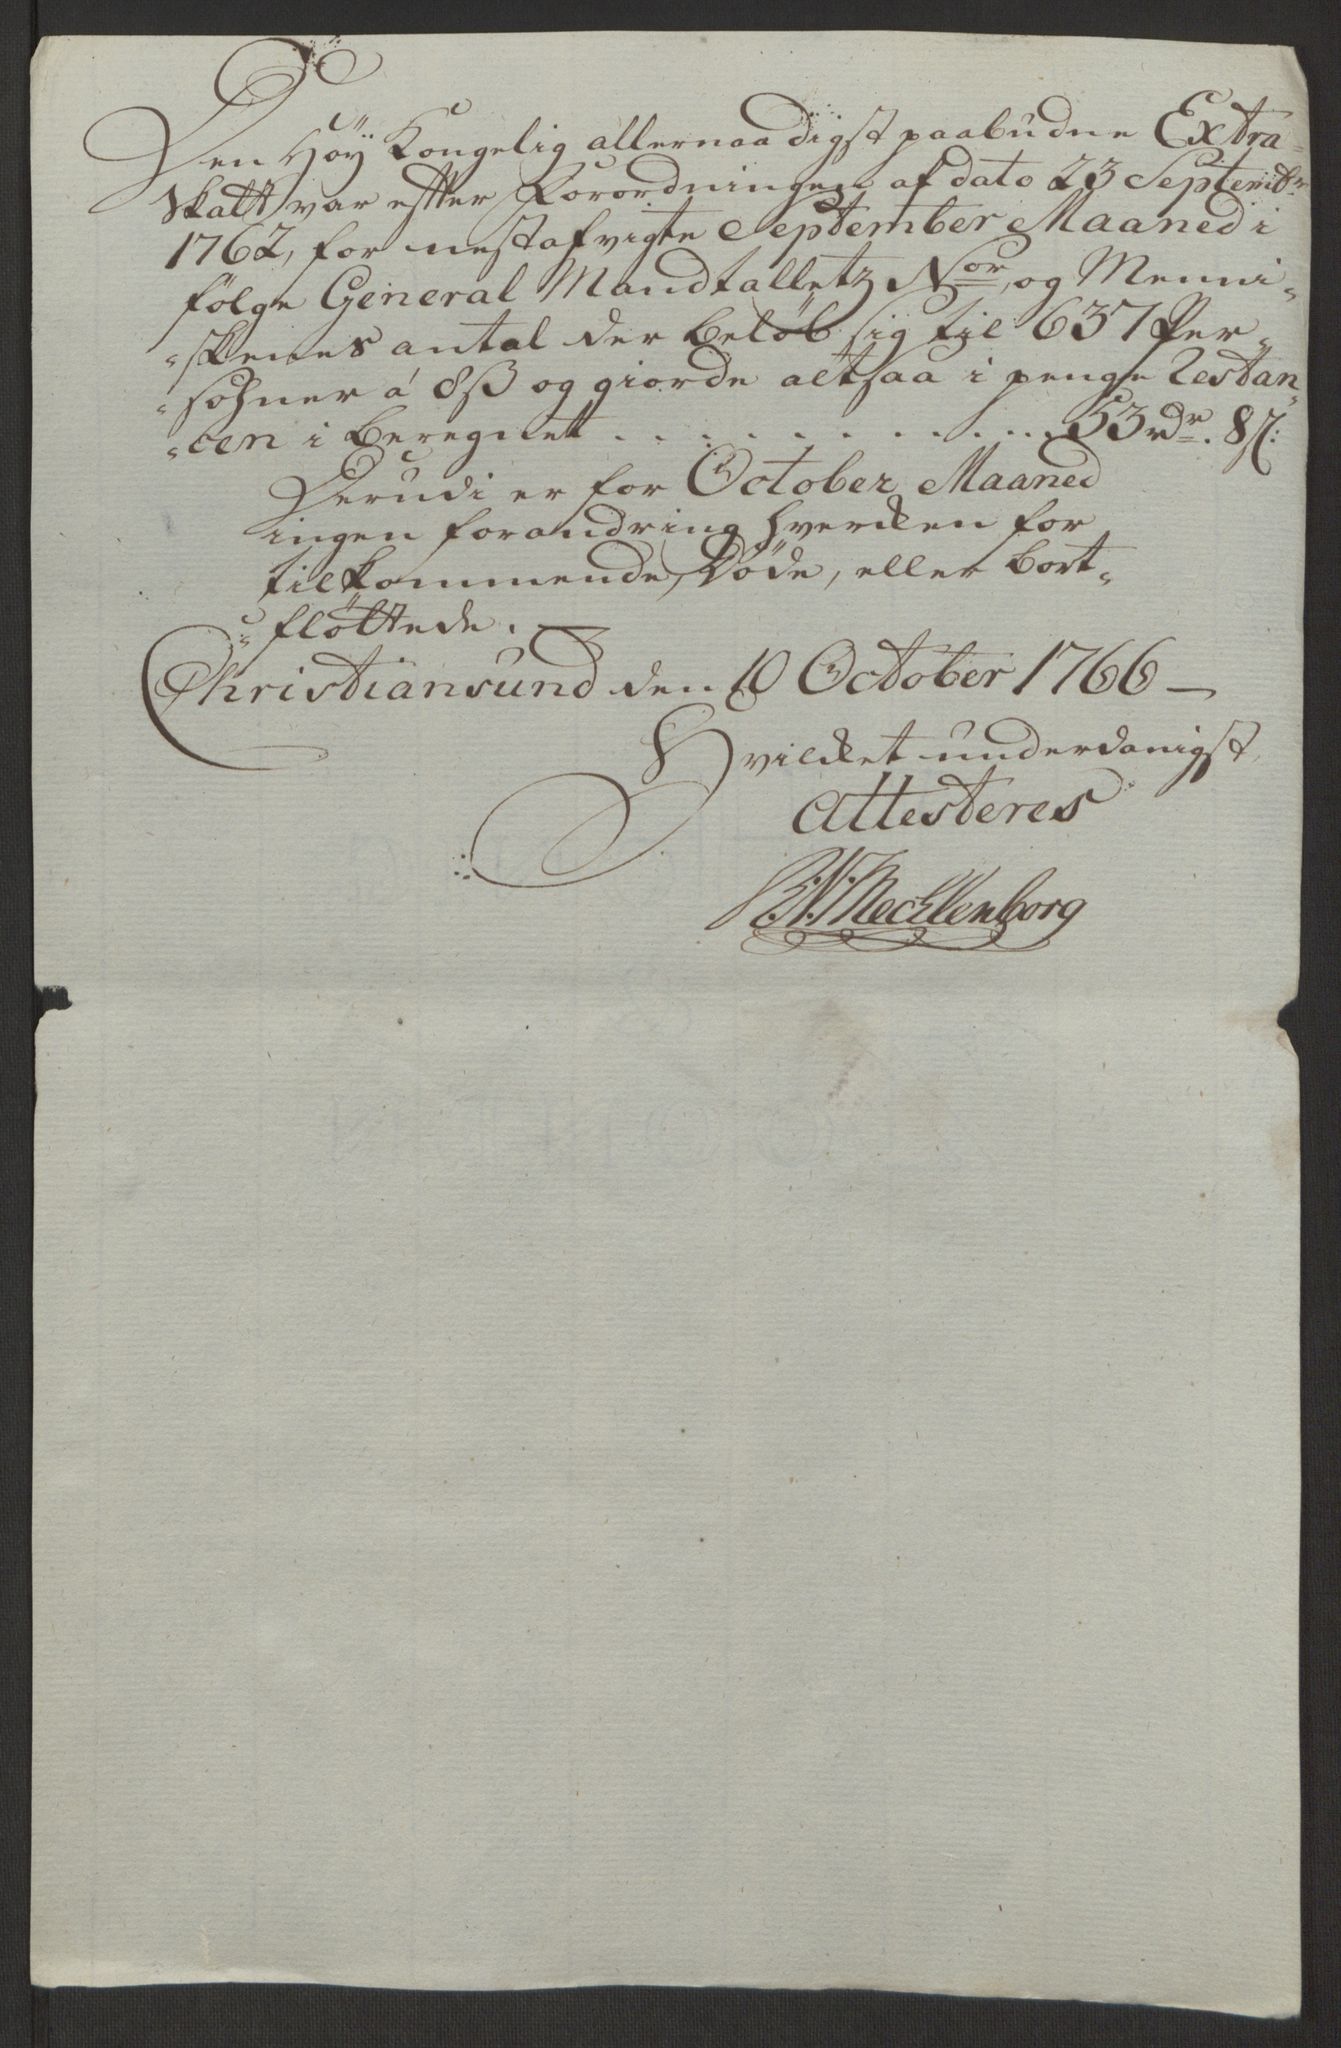 Den Høÿ Kongelig allernaadigst paabudne Extra-
Skatt var efter Forordningen af dato 23 Septembr
1762, for nestafvigte September Maaned i
følge General Mandtalletz Nor, og Menni-
skenes antal der beløb sig til 637 Per-
sohner á 8ß og giorde altsaa i penge Restan-
cen i beregnet . . . . . . . . . . . 53 rdr. 8 s:
Derudi er for October Maaned
ingen forandring hverken for
tilkommende, Døde, eller bort-
fløttede.
Christiansund den 10 October 1766 —
Hvilket underdanigst
Attesteres
Mechlenborg